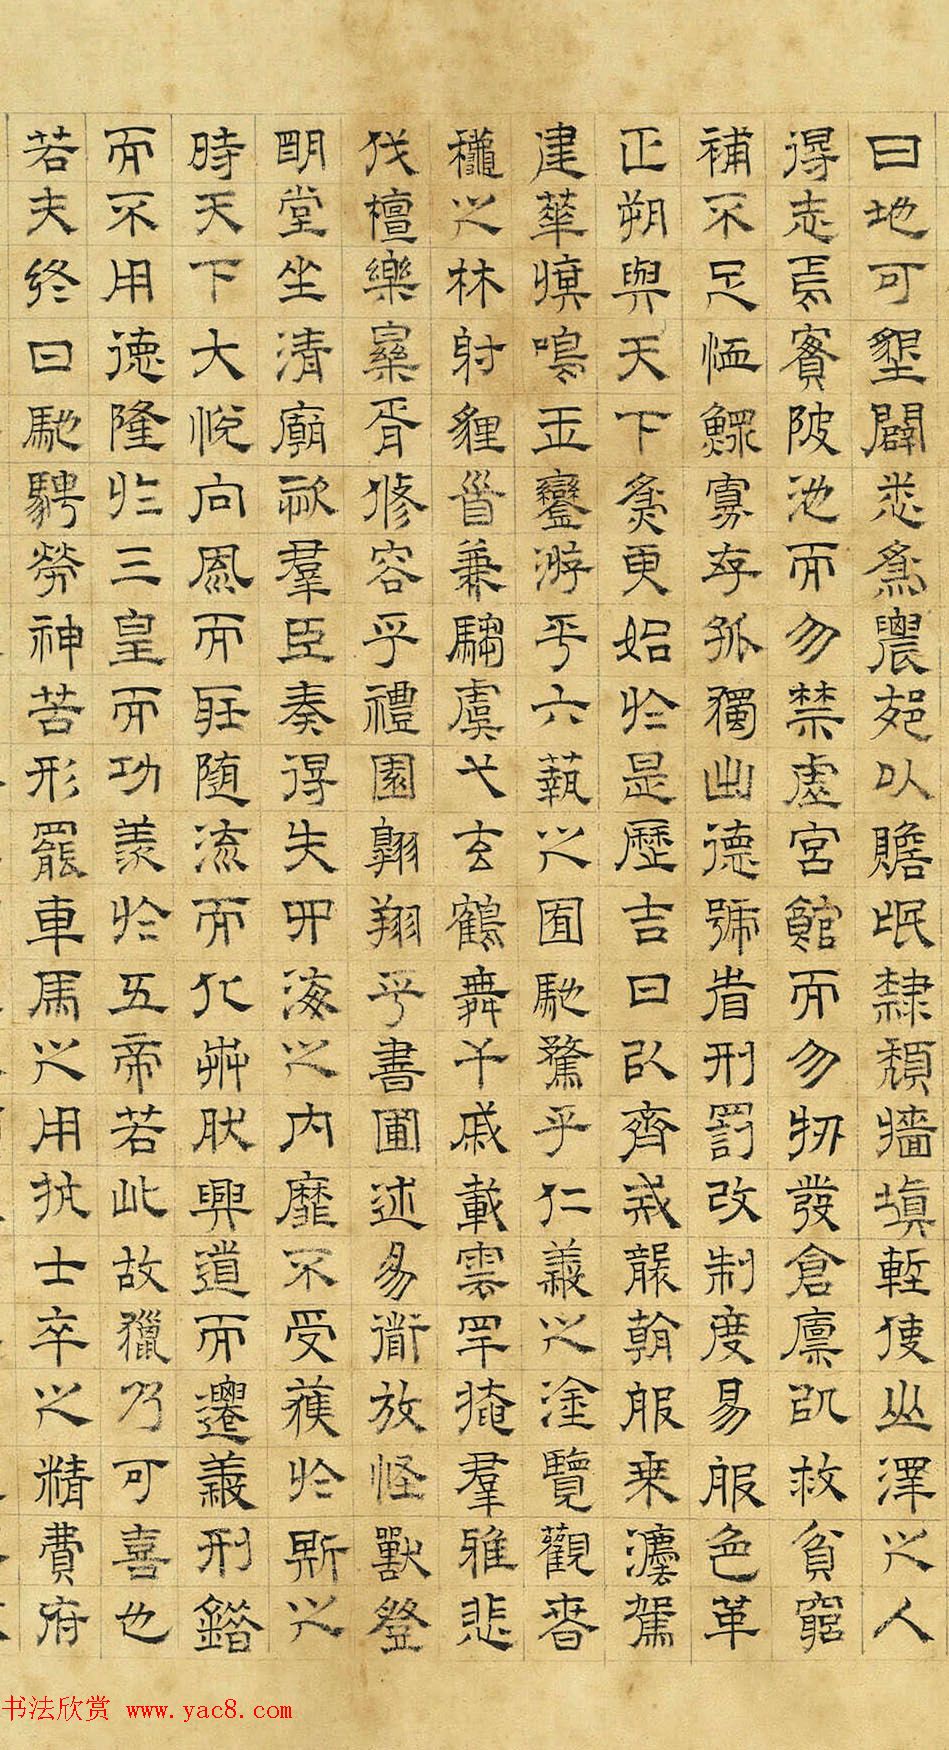 曰地可墾闢悉為農郊以贍氓隸頹牆填塹使山澤之人
得志焉實陂池而勿禁虛宮館而勿牣發倉廩以救貧窮
補不足恤鰥寡存孤獨出德號省刑罰改制度易服色革
正朔與天下為更始於是歷吉日以齊戒襲朝服乘灋駕
建華旗鳴玉鸞游乎六藝之囿馳騖乎仁義之塗覽觀春
龝之林射貍首兼騶虞弋玄鶴舞干戚載雲罕揜羣雅悲
伐檀樂樂胥修容乎禮園翱翔乎書圃述易道放怪獸登
明堂坐清廟次羣臣奏得失四海之內靡不受獲於斯之
時天下大悅向風而聽隨流而化芔然興道而遷義刑錯
而不用德隆於三皇而功羨於五帝若此故獵乃可喜也
若夫終日馳騁勞神苦形罷車馬之用抏士卒之精費府
书法欣赏 www.yac8.com